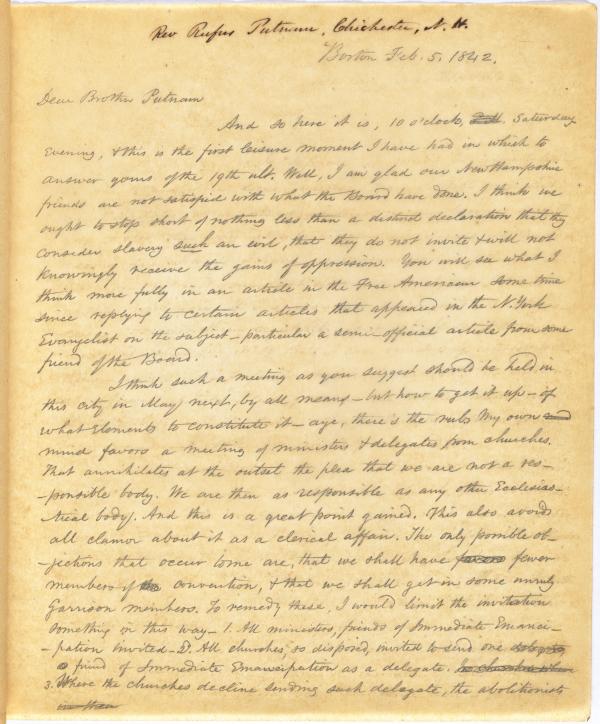 Rev Rufus Putnam, Chichester, N. H.
Boston Feb. 5. 1842.
Dear Brother Putnam
And so here it is, 10 o'clock, Saturday
evening, & this is the first leisure moment I have had in which to
answer yours of the 19th ult. Well, I am glad our New Hampshire
friends are not satisfied with what the Board have done. I think we
ought to stop short of nothing less than a distinct declaration that they
consider slavery such an evil, that they do not invite & will not
knowingly receive the gains of oppression. You will see what I
think more fully in an article in the Free American some time
since replying to certain articles that appeared in the N. York
Evangelist on the subject - particular a semi-official article from some
friend of the Board.
I think such a meeting as you suggest should be held in
this city in May next, by all means - but how to get it up - of
what elements to constitute it - aye, there's the rub. My own
mind favors a meeting of ministers & delegates from churches.
That annihilates at the outset the plea that we are not a res-
-ponsible body. We are then as responsible as any other Ecclesias-
-tical body. And this is a great point gained. This also avoids
all clamor about it as a clerical affair. The only possible ob-
-jections that occur to me are, that we shall have fewer
members of convention, & that we shall get in some unruly
Garrison members. To remedy these, I would limit the invitation
something in this way - 1. All ministers, friends of Immediate Emanci-
-pation invited - 2. All churches, so disposed, invited to send one
a friend of Immediate Emancipation as a delegate.
3. Where the churches decline sending such delegate, the abolitionists
in them